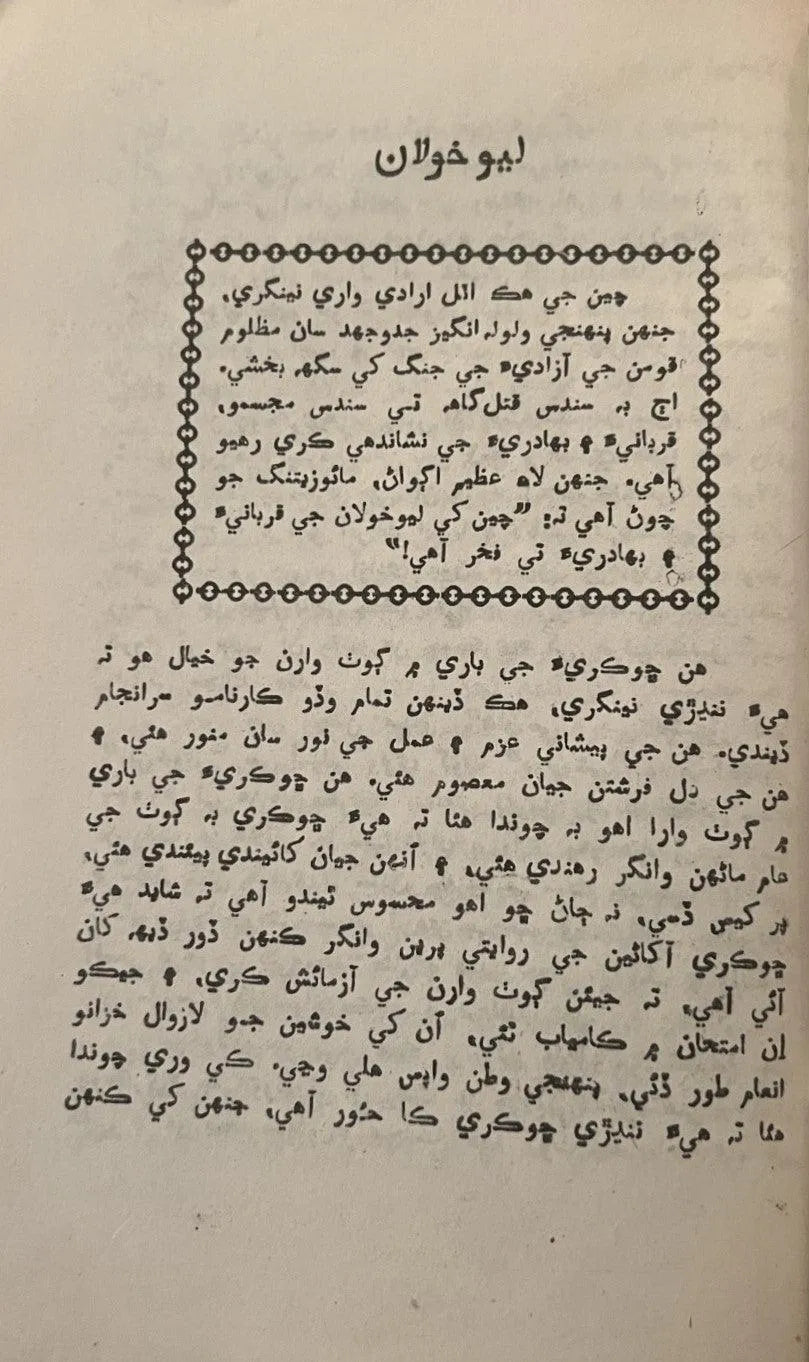 ليو خولان
چين جي هڪ اٽل ارادي واري نينگري،
جنهن پنهنجي ولولہ انگيز جدوجهد سان مظلوم
قومن جي آزاديءَ جي جنگ کي سگھہ بخشي.
اڄ بہ سندس قتل گاھہ تي سندس مجسمو،
قربانيءَ ۽ بهادريءَ جي نشاندهي ڪري رهيو
آهي. جنهن لاءِ عظيم اڳواڻ، مائوزيتنگ جو
چوڻ آهي تہ: ”چين کي ليوخولان جي قربانيءَ
۽ بهادريءَ تي فخر آهي!“
هن ڇوڪريءَ جي باري ۾ ڳوٺ وارن جو خيال هو تہ
هيءَ ننڍڙي نينگري، هڪ ڏينهن تمام وڏو ڪارنامو سرانجام
ڏيندي. هن جي پيشاني عزم ۽ عمل جي نور سان منور هئي، ۽
هن جي دل فرشتن جيان معصوم هئي. هن ڇوڪريءَ جي باري
۾ ڳوٺ وارا اهو بہ چوندا هئا تہ هيءَ ڇوڪري بہ ڳوٺ جي
عام ماڻهن وانگر رهندي هئي، ۽ اُنهن جيان کائيندي پيئندي هئي،
پر کيس ڏسي، نہ ڄاڻ ڇو اهو محسوس ٿيندو آهي تہ شايد هيءَ
ڇوڪري آکاڻين جي روايتي پرين وانگر ڪنهن ڏور ڏيھہ کان
آئي آهي، تہ جيئن ڳوٺ وارن جي آزمائش ڪري، ۽ جيڪو
اِن امتحان ۾ ڪامياب ٿئي، اُن کي خوشين جو لازوال خزانو
انعام طور ڏئي، پنهنجي وطن واپس هلي وڃي. ڪي وري چوندا
هئا تہ هيءَ ننڍڙي ڇوڪري ڪا حُور آهي، جنهن کي ڪنهن